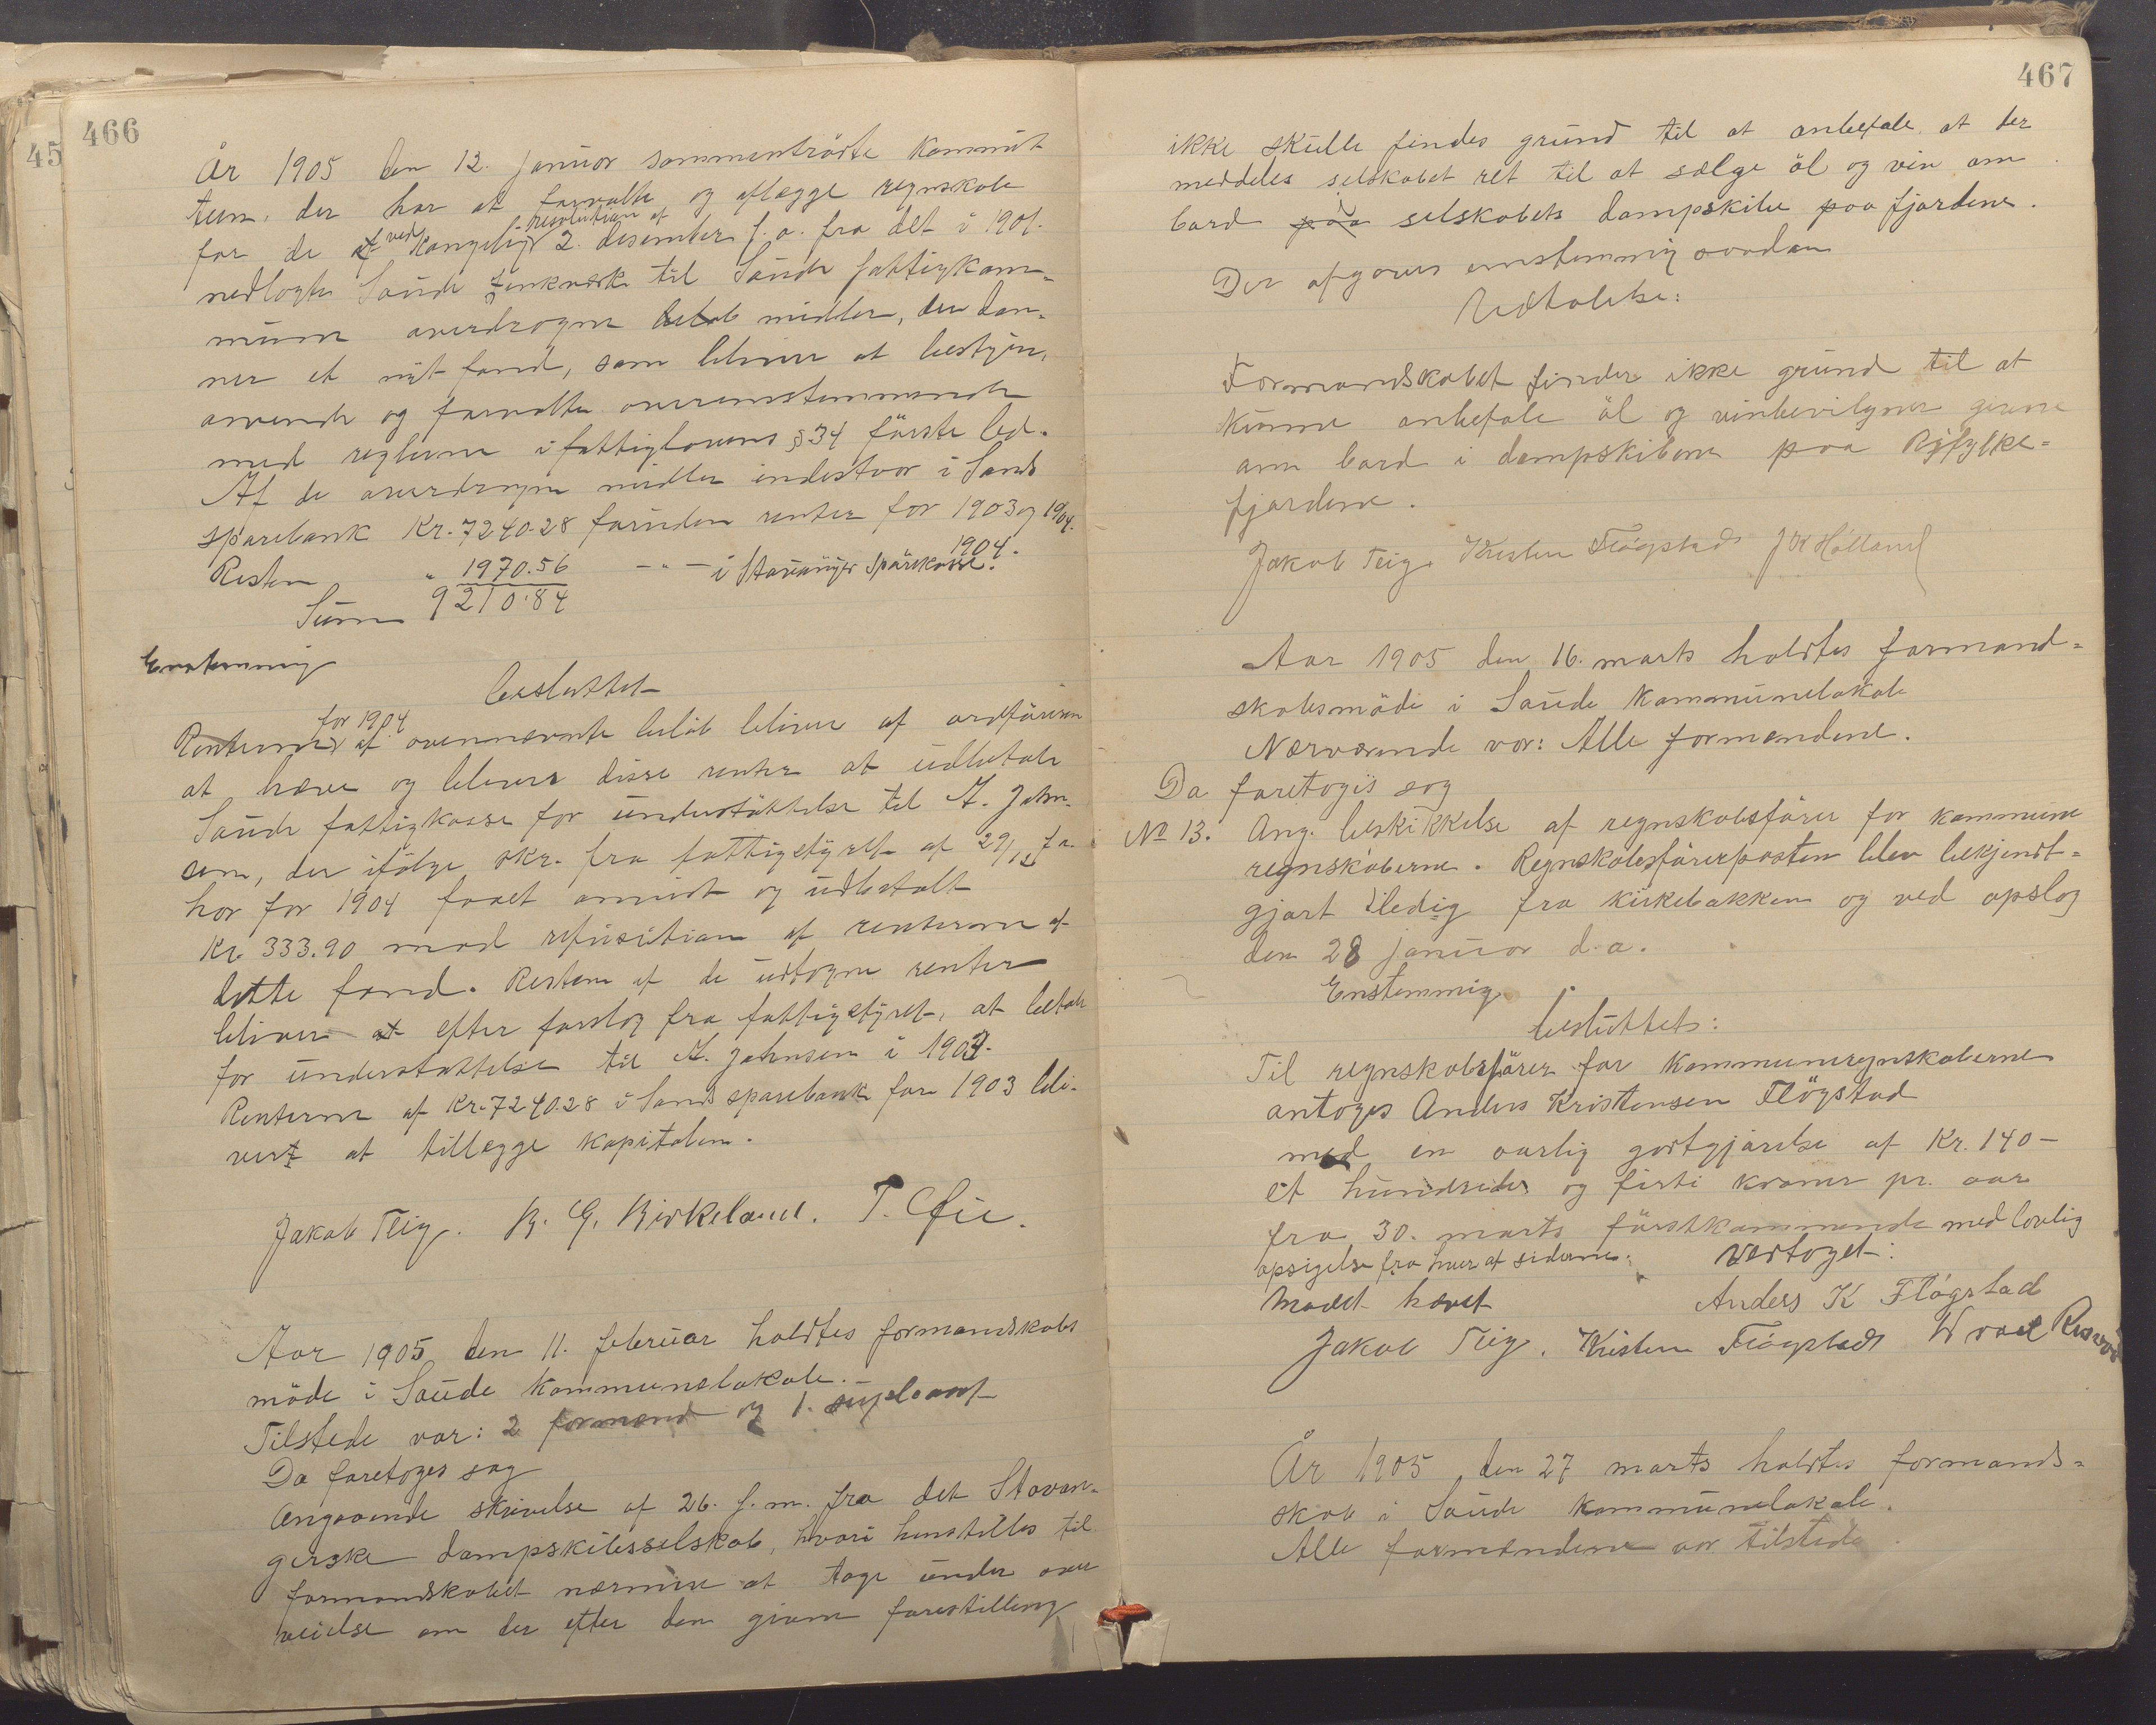 45
466
År 1905 den 12. januar sammentraadte kommit
teen, der har at forvalte og aflægge regnskab
for de ved kongelig resolution af 2. desember f. a. fra det i 1901.
nedlagte Saude zinkværk til Saude fattigkom=
mune overdragne midler, der dan-
ner et nyt fond, som bliver at bestyre,
anvende og forvalte overensstemmende
med reglerne i fattiglovens § 34 første led.
Af de overdragne midler indestaar i Sands
sparebank Kr. 7240.28 foruden renter for 1903 og 1904.
Resten " 1970.56 — " — i Stavanger Sparekasse. 1904.
Sum 9210.84
Enstemmig
besluttet
Renterne for 1904 af ovennævnte beløb bliver af ordføreren
at hæve og bliver disse renter at udbetale
Saude fattigkasse for understøttelse til A. John-
sen, der ifølge skr. fra fattigstyret af 29/12 f a.
har for 1904 faaet anvist og udbetalt
Kr. 333.90 mod refusition af renterne af
dette fond. Resten af de udtagne renter
bliver efter forslag fra fattigstyret, at betale
for understøttelse til A. Johnsen i 1903.
Renterne af Kr. 7240.28 i Sands sparebank for 1903 bli-
ver at tillægge kapitalen.
Jakob Teig. B. G. Birkeland. T. Øie.
Aar 1905 den 11. februar holdtes formandskabs
møde i Saude kommunelokale.
Tilstede var: 2 formænd og 1. supleant
Da foretoges sag
Angaaende skrivelse af 26. f. m. fra det Stavan-
gerske dampskibsselskab, hvori henstilles til
formandskabet nærmere at tage under over
veielse om der efter den givne forestilling
467
ikke skulle findes grund til at anbefale at der
meddeles selskabet ret til at sælge øl og vin om
bord paa selskabets dampskibe paa fjordene.
Der afgaves enstemmig saadan
Udtalelse:
Formandskabet finder ikke grund til at
kunne anbefale øl og vinbevilgner givne
om bord i dampskibene paa Ryfylke=
fjordene.
Jakob Teig. Kristen Fløgstad J W Hølland
Aar 1905 den 16. marts holdtes formand=
skabsmøde i Saude kommunelokale
Nærværende var: Alle formændene.
Da foretoges sag
No 13. Ang. beskikkelse af regnskabsfører for kommune
regnskaberne. Regnskabsførerposten blev bekjendt=
gjort ledig fra kirkebakken og ved opslag
den 28 januar d. a.
Enstemmig
besluttet:
Til regnskabsfører for kommuneregnskaberne
antoges Anders Kristensen Fløgstad
med en aarlig godtgjørelse af Kr. 140 —
et hundrede og firti kroner pr. aar
fra 30. marts førstkommende med lovlig
opsigelse fra hver af siderne. Vedtaget:
Mødet hævet Anders K Fløgstad
Jakob Teig. Kristen Fløgstad
År 1905 den 27 marts holdtes formands=
skab i Saude kommunelokale.
Alle formændene var tilstede.